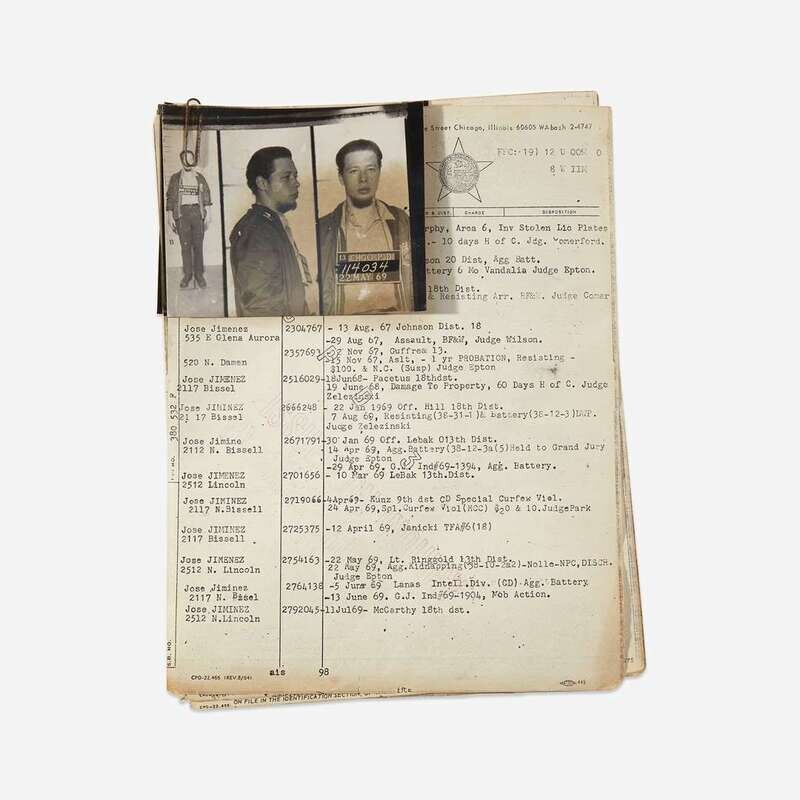 e Street Chicago, Illinois 60605 WAbash 2-4747
& DIST. CHARGE DISPOSITION
rphy, Area 6, Inv Stolen Lic Plates
.- 10 days H of C. Jdg.
son 20 Dist, Agg Batt.
ttery 6 Mo Vandalia Judge Epton.
18th Dist.
& Resisting Arr. BF&W. Judge Comar
114034
22 MAY 69
Jose Jimenez 2304767 - 13 Aug. 67 Johnson Dist. 18
535 E Glena Aurora -29 Aug 67, Assault, BF&W, Judge Wilson.
2357693 Nov 67, Guffrea 13.
520 N. Damen Nov 67, Aslt, - 1 yr PROBATION, Resisting -
$100. & N.C. (Susp) Judge Epton
Jose JIMENEZ 2516029-18Jun68- Pacetus 18thdst.
2117 Bissel 19 June 68, Damage To Property, 60 Days H of C. Judge
Zelezinski
Jose JIMINEZ 2666248 - 22 Jan 1969 Off. Hill 18th Dist.
21 17 Bissel 7 Aug 69, Resisting(38-31-1)& Battery(38-12-3)LWP.
Judge Zelezinski
Jose Jimino 2671791-30 Jan 69 Off. Lebak 013th Dist.
2112 N. Bissell 14 Apr 69, Agg.Battery(38-12-3a(5)Held to Grand Jury
Judge Epton
-29 Apr 69. G.J. Ind#69-1394, Agg. Battery.
Jose JIMENEZ 2701656 - 10 Mar 69 LeBak 13th.Dist.
2512 Lincoln
Jose JIMINEZ 2719066-4Apr69- Kunz 9th dst CD Special Curfew Viol.
2117 N.Bissell 24 Apr 69,Spl.Curfew Viol(MCC) $20 & 10.JudgePark
Jose JIMINEZ 2725375 -12 April 69, Janicki TFA#6(18)
2117 Bissell
Jose JIMENEZ 2754163 -22 May 69, Lt. Ringgold 13th Dist.
2512 N. Lincoln 22 May 69, Agg.Kidnapping(38-10-2a2)-Nolle-NPC,DISCH.
Judge Epton
Jose Jiminez 2764138 -5 June 69 Lanas Intell.Div. (CD) Agg. Battery
2117 N. Bissel -13 June 69. G.J. Ind#69-1904, Mob Action.
Jose JIMINEZ 2792045-11Jul69- McCarthy 18th dst.
2512 N.Lincoln
CPD-22.466 (REV.8/64) ais 98
ON FILE IN THE IDENTIFICATION SECTION,